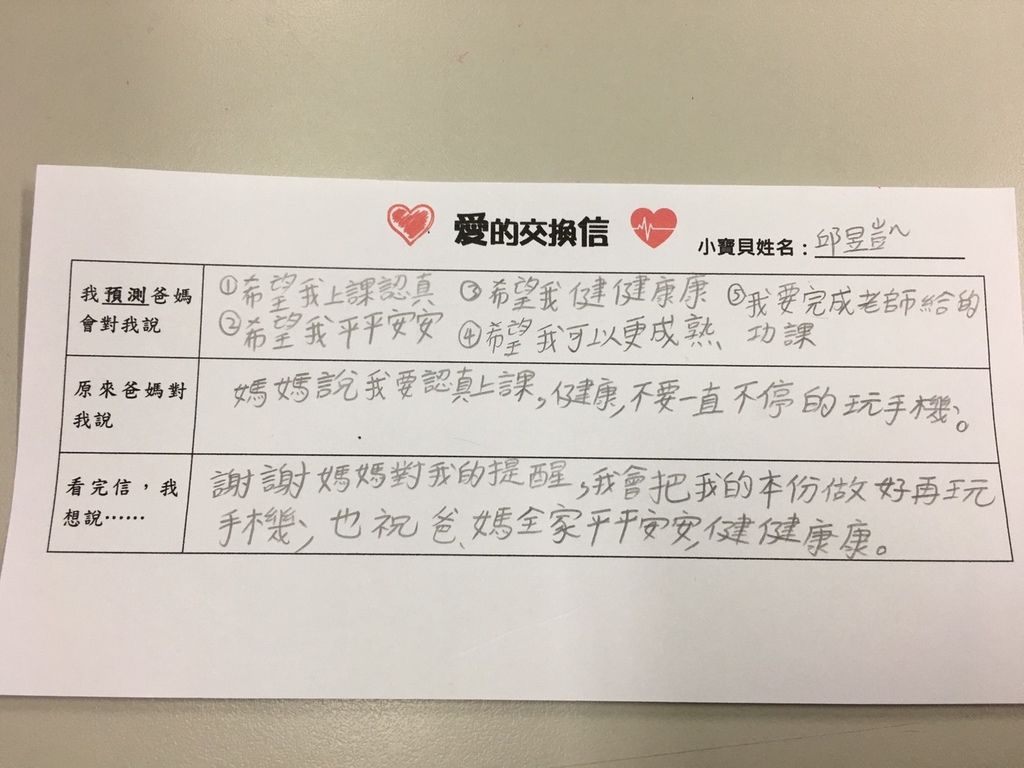 愛的交換信
小寶貝姓名：邱昱凱
我預測爸媽
會對我說
①希望我上課認真 ③希望我健健康康 ⑤我要完成老師給的
②希望我平平安安 ④希望我可以更成熟 功課
原來爸媽對
我說
媽媽說我要認真上課，健康，不要一直不停的玩手機。
看完信，我
想說……
謝謝媽媽對我的提醒，我會把我的本份做好再玩
手機，也祝爸、媽全家平平安安，健健康康。